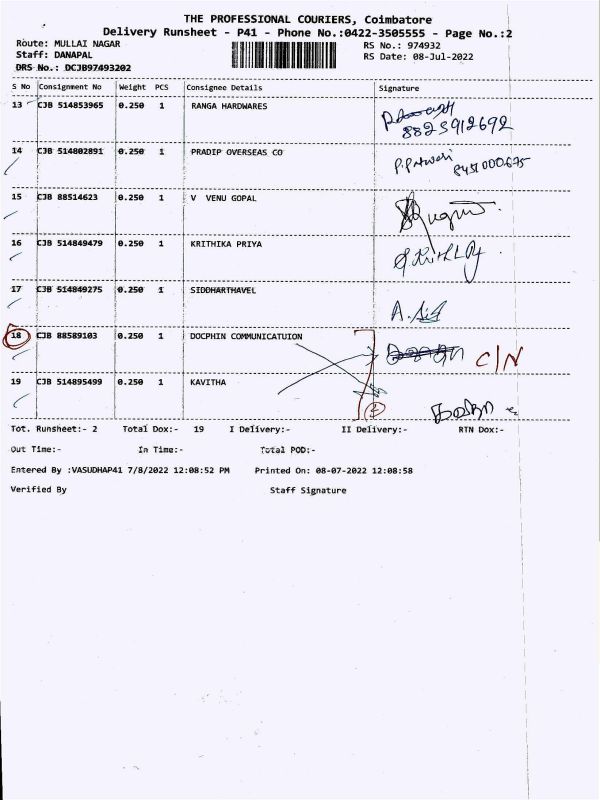 THE PROFESSIONAL COURIERS, Coimbatore
Delivery Runsheet - P41 - Phone No.:0422-3505555 - Page No.:2
Route: MULLAI NAGAR RS No.: 974932
Staff: DANAPAL RS Date: 08-Jul-2022
DRS No.: DCJB97493202
S No Consignment No Weight PCS Consignee Details Signature
13 CJB 514853965 0.250 1 RANGA HARDWARES
8825912692
14 CJB 514802891 0.250 1 PRADIP OVERSEAS CO
8451000675
15 CJB 88514623 0.250 1 V VENU GOPAL
16 CJB 514849479 0.250 1 KRITHIKA PRIYA
17 CJB 514849275 0.250 1 SIDDHARTHAVEL
18 CJB 88589103 0.250 1 DOCPHIN COMMUNICATUION C/N
19 CJB 514895499 0.250 1 KAVITHA
2
Tot. Runsheet:- 2 Total Dox:- 19 I Delivery:- II Delivery:- RTN Dox:-
Out Time:- In Time:- Total POD:-
Entered By :VASUDHAP41 7/8/2022 12:08:52 PM Printed On: 08-07-2022 12:08:58
Verified By Staff Signature